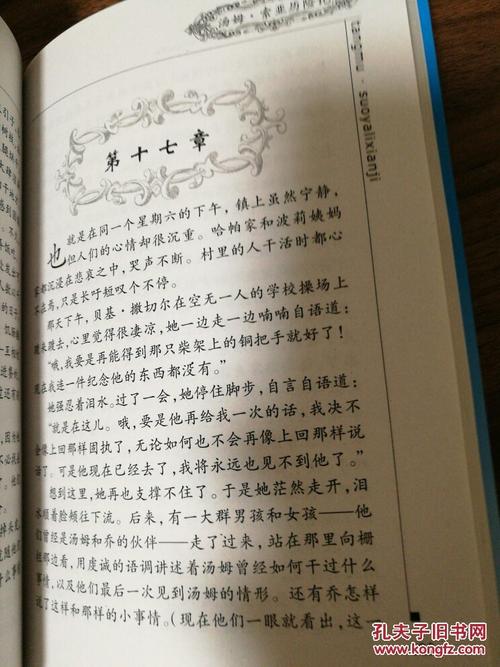 汤姆·索亚历险记
tangmu·suoyalixianji
第十七章
也就是在同一个星期六的下午，镇上虽然宁静，
但人们的心情却很沉重。哈帕家和波莉姨妈
家都沉浸在悲哀之中，哭声不断。村里的人干活时都心
不在焉，只是长吁短叹个不停。
那天下午，贝基·撒切尔在空无一人的学校操场上
踱来踱去，心里觉得很凄凉，她一边走一边喃喃自语道：
“哦，我要是再能得到那只柴架上的铜把手就好了！
现在我连一件纪念他的东西都没有。”
她强忍着泪水。过了一会，她停住脚步，自言自语道：
“就是在这儿。哦，要是他再给我一次的话，我决不
会像上回那样固执了，无论如何也不会再像上回那样说
话了。可是他现在已经去了，我将永远也见不到他了。”
想到这里，她再也支撑不住了。于是她茫然走开，泪
水顺着脸颊往下流。后来，有一大群男孩和女孩——他
们曾经是汤姆和乔的伙伴——走了过来，站在那里向栅
栏那边看，用虔诚的语调讲述着汤姆曾经如何干过什么
事情，以及他们最后一次见到汤姆的情形。还有乔怎样
说了这样和那样的小事情。（现在他们一眼就看出，这一
孔夫子旧书网
www.kongfz.com